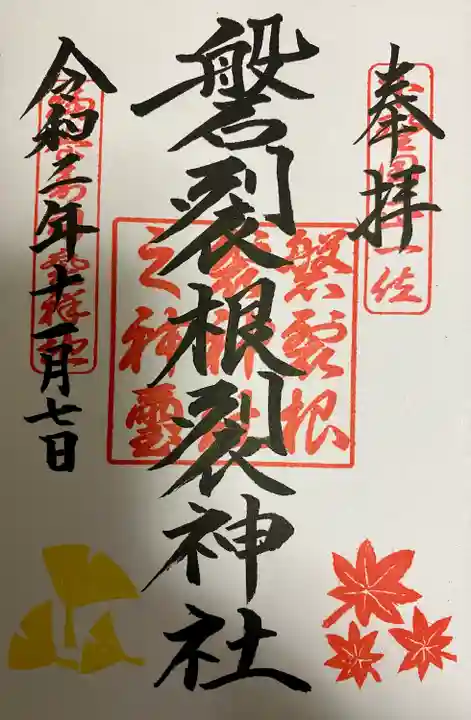 奉拝
磐裂根裂神社
令和二年十一月七日
磐裂根
裂神社
之神璽